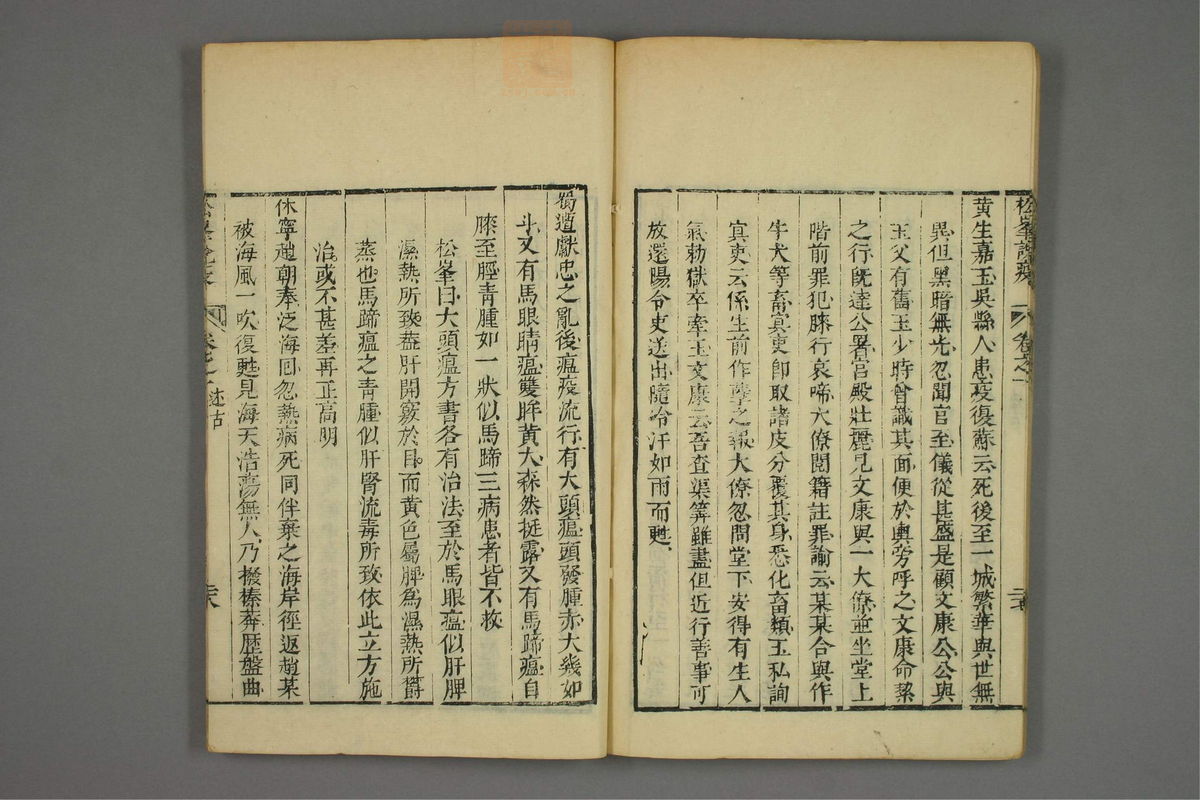 黃生嘉玉吳縣人患疫復蘇云死後至一城繁華與世無
異但黑暗無光忽聞官至儀從甚盛是顧文康公公與
玉父有舊玉少時曾識其面便於輿旁呼之文康命挈
之行旣達公署宮殿壯麗見文康與一大僚並坐堂上
階前罪犯膝行哀啼大僚閱籍註罪諭云某某合與作
牛犬等畜冥吏卽取諸皮分覆其身悉化畜類玉私詢
冥吏云係生前作孽之報大僚忽問堂下安得有生人
氣勅獄卒牽玉文康云吾查渠筭雖盡但近行善事可
放還陽令吏送出隨冷汗如雨而甦
蜀遭獻忠之亂後瘟疫流行有大頭瘟頭發腫赤大幾如
斗又有馬眼睛瘟雙眸黃大森然挺露又有馬蹄瘟自
膝至脛靑腫如一狀似馬蹄三病患者皆不救
松峯曰大頭瘟方書各有治法至於馬眼瘟似肝脾
濕熱所致葢肝開竅於目而黃色屬脾為濕熱所欝
蒸也馬蹄瘟之靑腫似肝腎流毒所致依此立方施
治或不甚差再正高明
休寧趙朝奉泛海囘忽熱病死同伴棄之海岸徑返趙某
被海風一吹復甦見海天浩蕩無人乃撥榛莽歷盤曲
述古